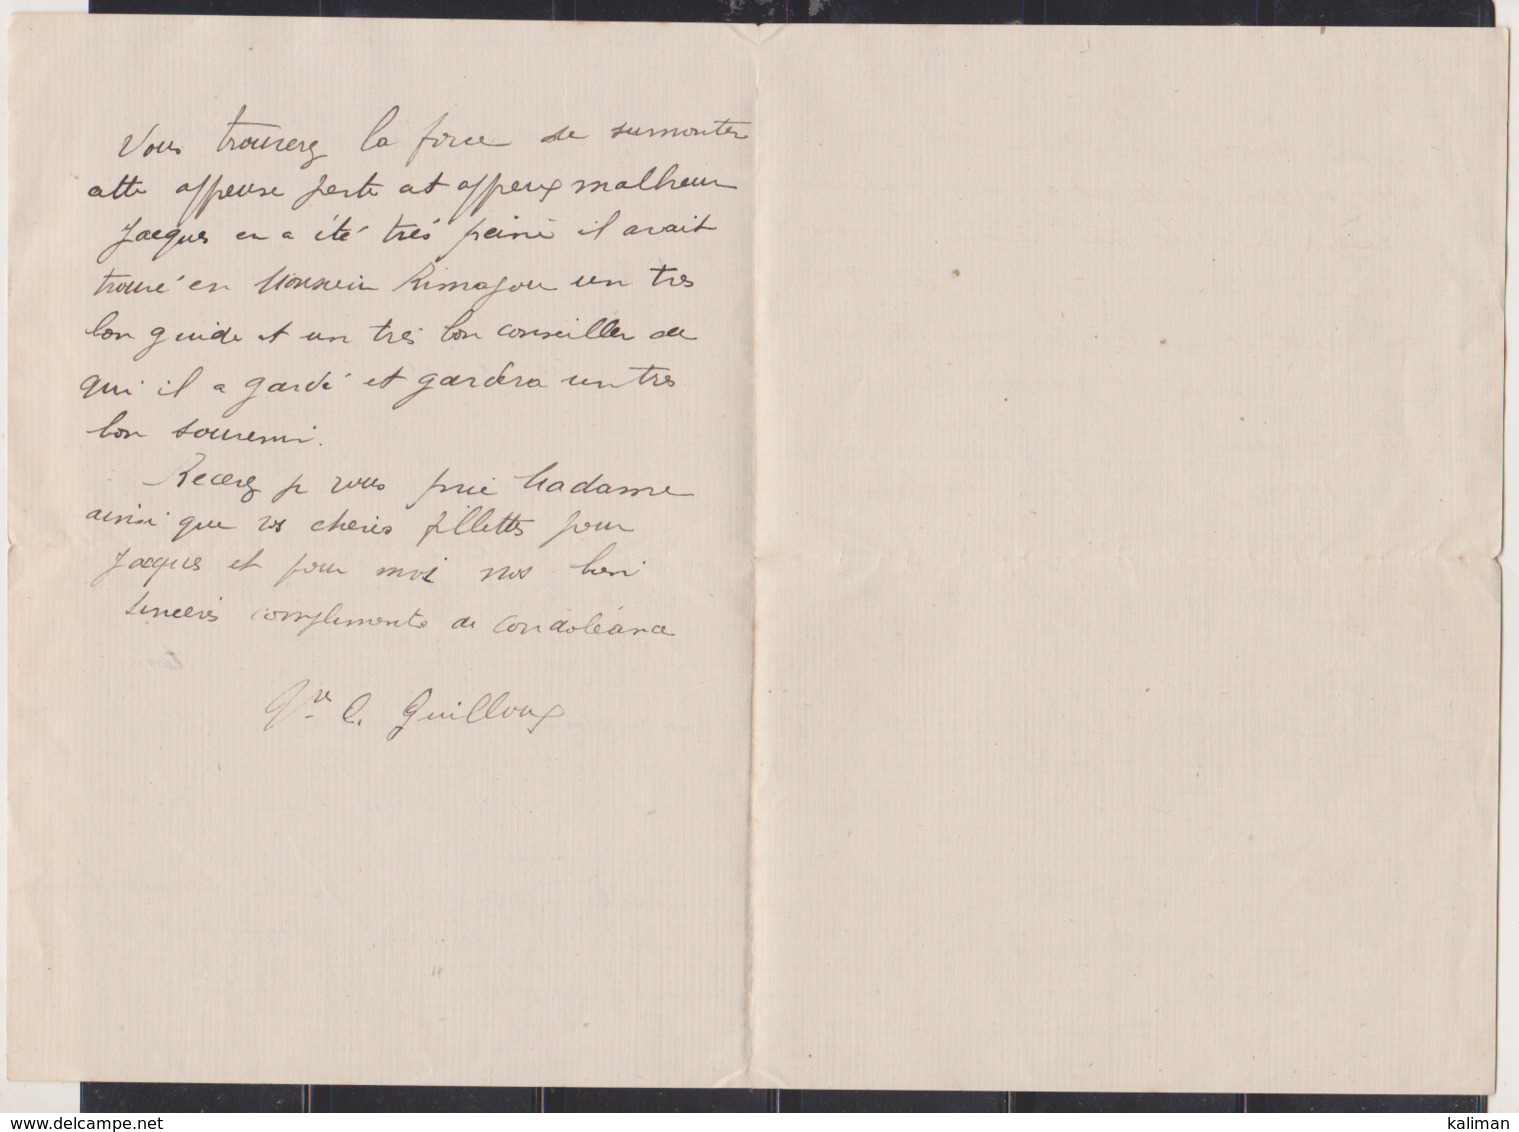 Vous trouverez la force de surmonter
cette affreuse perte et affreux malheur
Jacques en a été très peiné il avait
trouvé en Monsieur Rimajou un très
bon guide et un très bon conseiller de
qui il a gardé et gardera un très
bon souvenir.
Recevez je vous prie Madame
ainsi que vos chères fillettes pour
Jacques et pour moi nos bien
sincères compliments de condoléance
Vve C. Guilloux
delcampe.net
kaliman